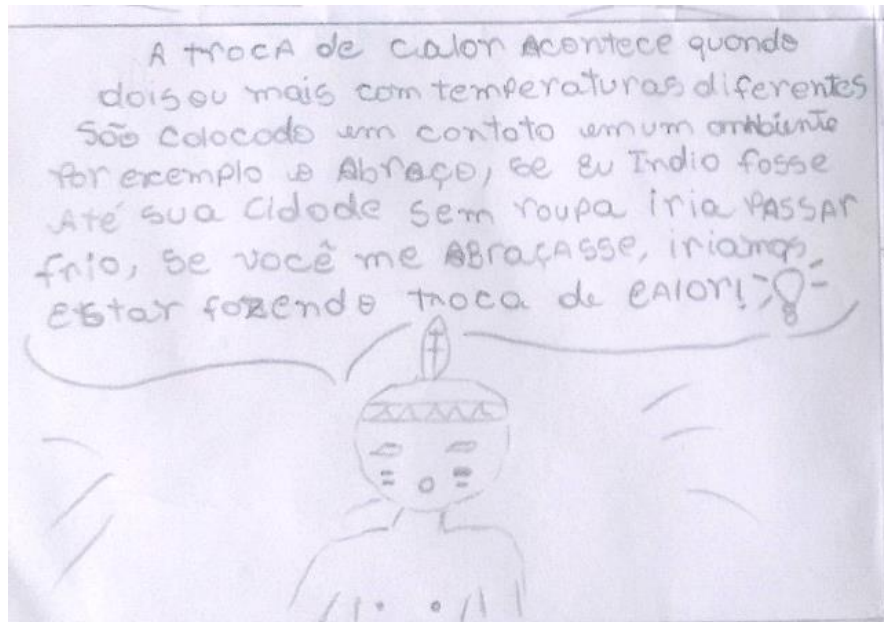 A troca de calor Acontece quando
dois ou mais com temperaturas diferentes
são colocado em contato em um ambiente
Por exemplo o Abraço, se eu Indio fosse
Até sua cidade sem roupa iria PASSAR
frio, se você me ABraçAsse, iriamos
estar fazendo troca de cAlor!